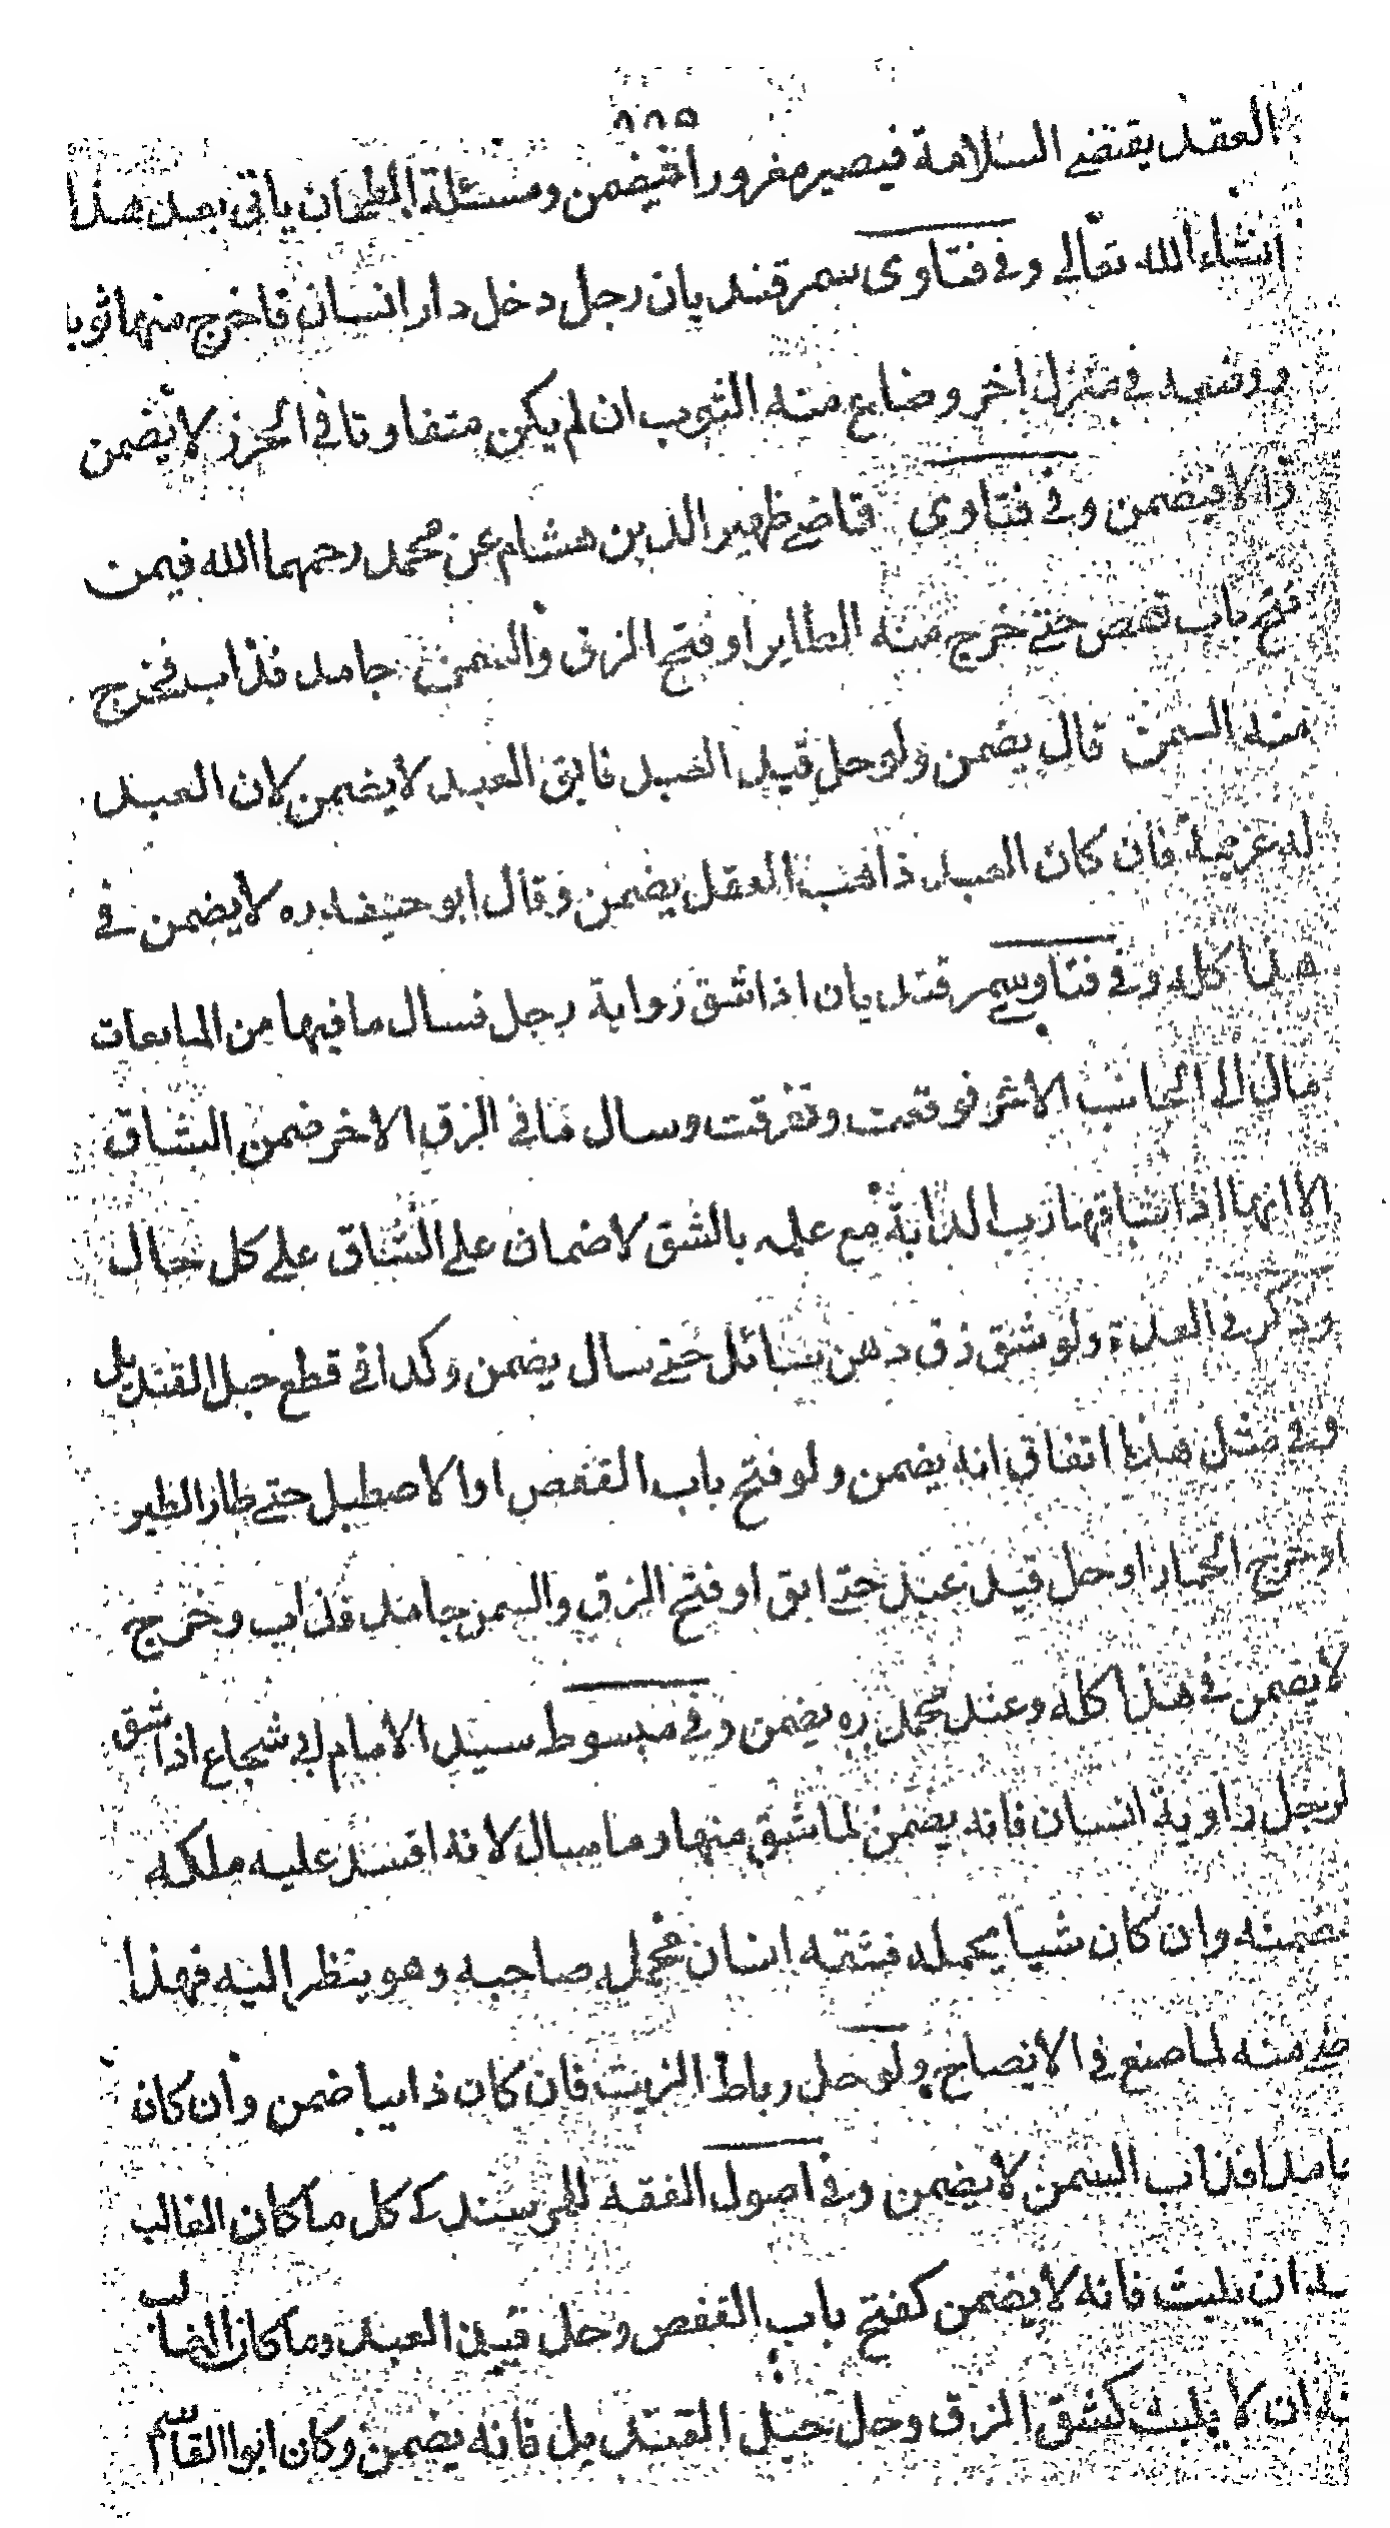 العقد يقتضے السلامة فيصير مغرورا فيضمن ومسئلة الطحان ياتى بعد هذا
انشاء الله تعالے وفے فتاوى سمرقند يان رجل دخل دار انسان فاخرج منها ثوبا
ووضعه فے منزل اخر وضاع منه الثوب ان لم يكن متفاوتا فى الحرز لا يضمن
والا فيضمن وفے فتاوى قاضے ظهير الدين هشام عن محمد رحمهما الله فيمن
فتح باب قفص حتے خرج منه الطاير او فتح الزق والسمن جامد فذاب فخرج
منه السمن قال يضمن ولو حل قيد العبد فابق العبد لا يضمن لان العبد
له عزيمة فان كان العبد ذاهب العقل يضمن وقال ابو حنيفه ره لا يضمن فے
هذا كله وفے فتاوى سمر قند يان اذا شق زواية رجل فسال ما فيها من المايعات
مال الے الجانب الاخر فوقعت وتفرقت وسال ما فے الزق الاخر ضمن الشاق
الا انهما اذا ساقها رب الدابة مع علمه بالشق لا ضمان علے الشاق علے كل حال
وذكر فے العدة ولو شق زق دهن سائل حتے سال يضمن وكذا فے قطع حبل القنديل
وفے مثل هذا اتفاق انه يضمن ولو فتح باب القفص او الاصطبل حتے طار الطير
او خرج الحمار او حل قيد عبد حتے ابق او فتح الزق والسمن جامد فذاب وخرج
لا يضمن فے هذا كله وعند محمد ره يضمن وفے مبسوط سيد الامام ابے شجاع اذا شق
لرجل راوية انسان فانه يضمن لما شق منها وما سال لانه افسد عليه ملكه
فضمنه وان كان شيا يحمله فشقه انسان فحمله صاحبه وهو ينظر اليه فهذا
منه لما صنع فے الايضاح ولو حل رباط الزيت فان كان ذايبا ضمن وان كان
جامدا فذاب السمن لا يضمن وفے اصول الفقه كل ما كان الغالب
ان يلبث فانه لا يضمن كفتح باب القفص وحل قيد العبد وما كان الغالب
ان لا يلبث كشق الزق وحل حبل القنديل فانه يضمن وكان ابوا القاسم